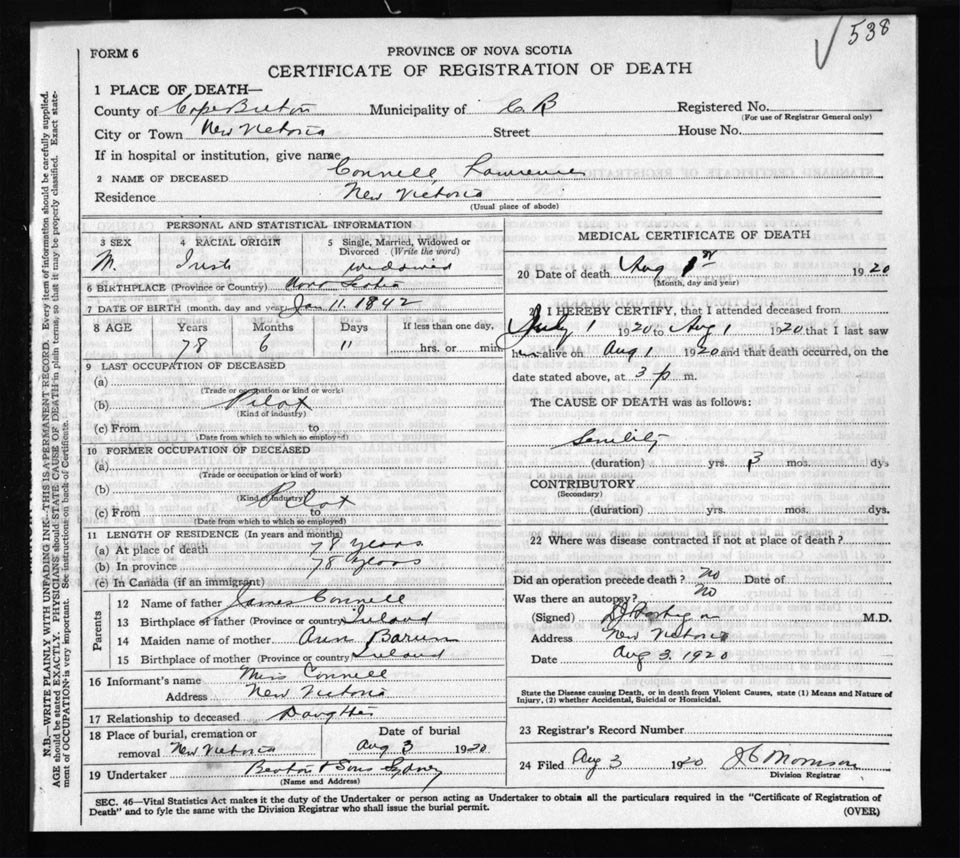 538
FORM 6
PROVINCE OF NOVA SCOTIA
CERTIFICATE OF REGISTRATION OF DEATH
1 PLACE OF DEATH—
County of Cape Breton Municipality of C B Registered No.
(For use of Registrar General only)
City or Town New Victoria Street House No.
If in hospital or institution, give name
2 NAME OF DECEASED Connell, Lawrence
Residence New Victoria
(Usual place of abode)
PERSONAL AND STATISTICAL INFORMATION
3 SEX 4 RACIAL ORIGIN 5 Single, Married, Widowed or
Divorced (Write the word)
M. Irish widowed
6 BIRTHPLACE (Province or Country) Nova Scotia
7 DATE OF BIRTH (month, day and year) Jan 11. 1842
8 AGE Years Months Days If less than one day,
78 6 11 hrs. or min
9 LAST OCCUPATION OF DECEASED
(a)
(Trade or occupation or kind or work)
(b) Pilot
(Kind of industry)
(c) From to
(Date from which to which so employed)
10 FORMER OCCUPATION OF DECEASED
(a)
(Trade or occupation or kind of work)
(b) Pilot
(Kind of industry)
(c) From to
(Date from which to which so employed)
11 LENGTH OF RESIDENCE (In years and months)
(a) At place of death 78 years
(b) In province 78 years
(c) In Canada (if an immigrant)
Parents
12 Name of father James Connell
13 Birthplace of father (Province or country) Ireland
14 Maiden name of mother Ann
15 Birthplace of mother (Province or country) Ireland
16 Informant's name Miss Connell
Address New Victoria
17 Relationship to deceased Daughter
18 Place of burial, cremation or Date of burial
removal New Victoria Aug 3 1920
19 Undertaker & Sons Sydney
(Name and Address)
MEDICAL CERTIFICATE OF DEATH
20 Date of death Aug 1st 1920
(Month, day and year)
I HEREBY CERTIFY, that I attended deceased from
July 1 1920 to Aug 1 1920 that I last saw
h alive on Aug 1 1920 and that death occurred, on the
date stated above, at 3 p m.
The CAUSE OF DEATH was as follows:
Senility
(duration) yrs. 3 mos. dys
CONTRIBUTORY
(Secondary)
(duration) yrs. mos. dys.
22 Where was disease contracted if not at place of death?
Did an operation precede death? no Date of
Was there an autopsy? no
(Signed) M.D.
Address New Victoria
Date Aug 3. 1920
State the Disease causing Death, or in death from Violent Causes, state (1) Means and Nature of
Injury, (2) whether Accidental, Suicidal or Homicidal.
23 Registrar's Record Number
24 Filed Aug 3 1920 J C Morrison
Division Registrar
SEC. 46—Vital Statistics Act makes it the duty of the Undertaker or person acting as Undertaker to obtain all the particulars required in the "Certificate of Registration of
Death" and to fyle the same with the Division Registrar who shall issue the burial permit.
(OVER)
N.B.—WRITE PLAINLY WITH UNFADING INK—THIS IS A PERMANENT RECORD. Every item of information should be carefully supplied.
AGE should be stated EXACTLY. PHYSICIANS should STATE CAUSE OF DEATH in plain terms, so that it may be properly classified. Exact state-
ment of OCCUPATION is very important. See instructions on back of Certificate.